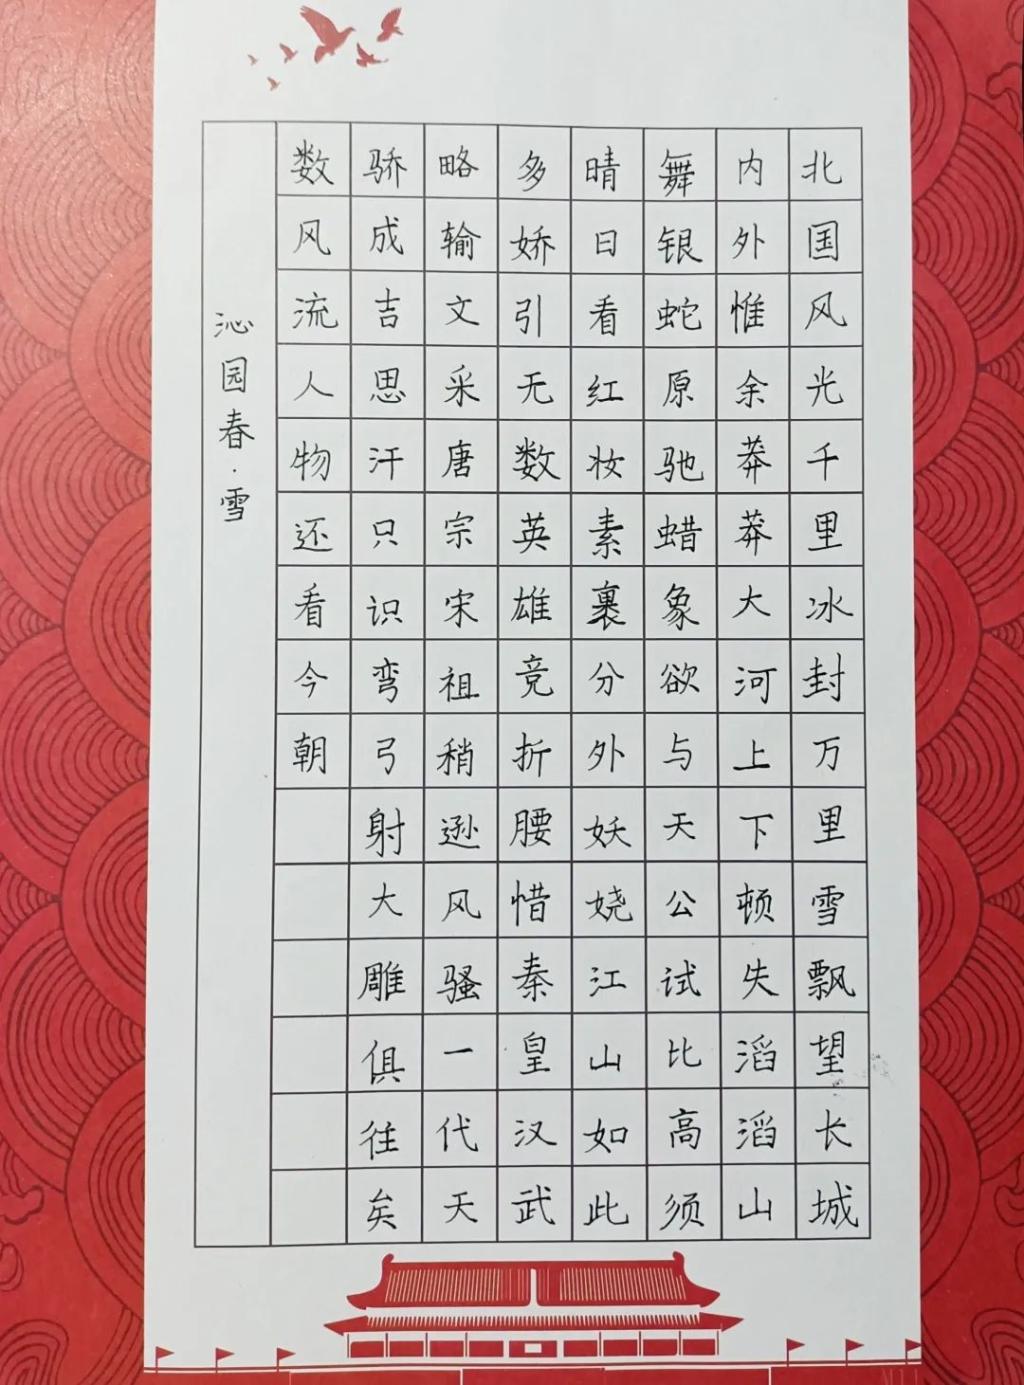 北国风光千里冰封万里雪飘望长城
内外惟余莽莽大河上下顿失滔滔山
舞银蛇原驰蜡象欲与天公试比高须
晴日看红妆素裹分外妖娆江山如此
多娇引无数英雄竞折腰惜秦皇汉武
略输文采唐宗宋祖稍逊风骚一代天
骄成吉思汗只识弯弓射大雕俱往矣
数风流人物还看今朝
沁园春·雪